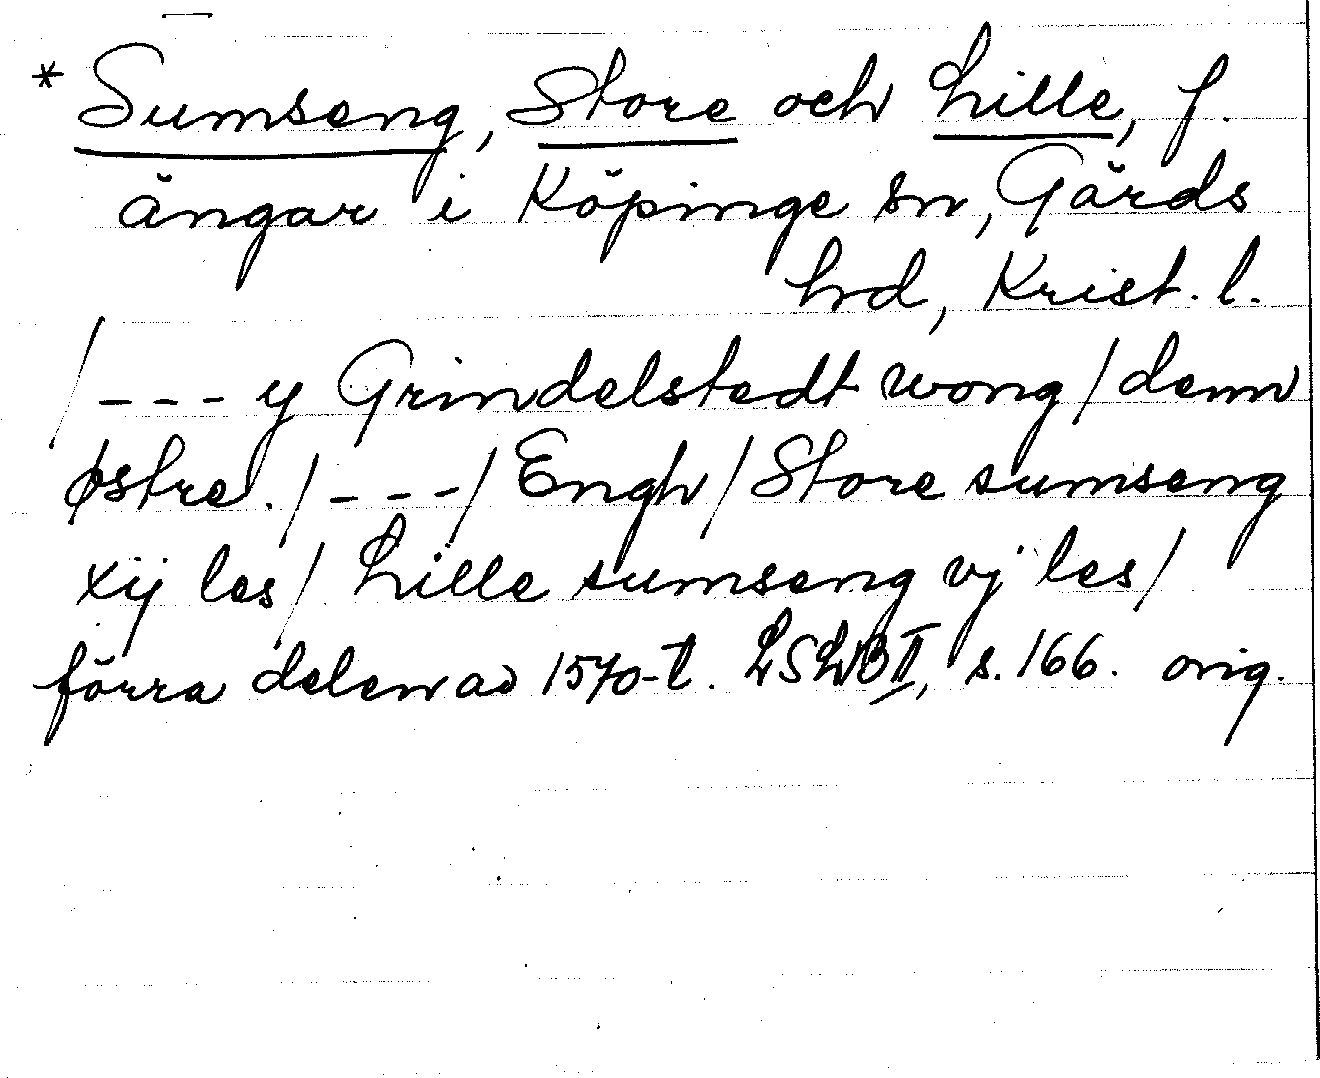 * Sumseng, Store och Lille, f.
ängar i Köpinge sn, Gärds
hrd, Krist. l.
/--- y Grindelstedt wong/denn
østre./---/Engh/Store sumseng
xij les/ Lille sumseng vj les/
förra delen av 1570-t. LSLB II, s. 166. orig.